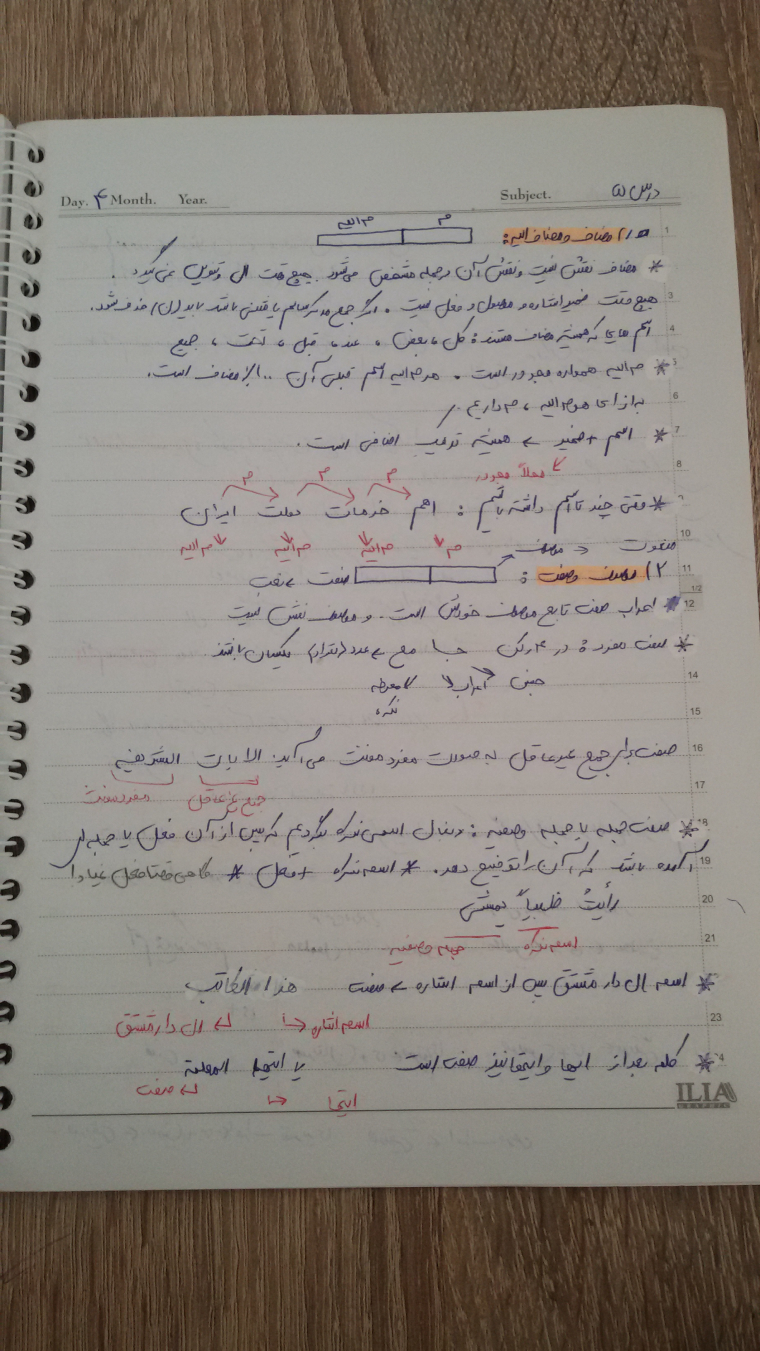 Day. ۴ Month. Year. Subject. درس ۵
۱) مضاف و مضاف الیه: م م الیه
* مضاف نقش نیست و نقش آن در جمله مشخص می‌شود. هیچ وقت ال و تنوین نمی‌گیرد.
هیچ وقت ضمیر اشاره و موصول و فعل نیست. اگر جمع مذکر سالم یا مثنی باشد باید (ن) حذف شود.
اسم هایی که همیشه مضاف هستند: کل، بعض، عند، قبل، تحت، جمیع
* م الیه همواره مجرور است. هر م الیه اسم قبلی آن .. الا مضاف است.
به ازای هر م الیه، م داریم.
* اسم + ضمیر ← همیشه ترکیب اضافی است.
محلاً مجرور
م م م
* وقتی چند تا اسم داشته باشیم: اهم خدمات دولت ایران
م م الیه م الیه م الیه
منعوت ← موصوف
۲) موصوف و صفت: صفت ← نعت
* اعراب صفت تابع موصوف خودش است. و موصوف نقش نیست
* صفت مفرد: در ۴ رکن جـ ا مع ← عدد (تعداد) یکسان باشند
جنس اعراب معرفه
نکره
صفت برای جمع غیرعاقل به صورت مفرد مونث می‌آید: الایات الشریفه
جمع غیرعاقل مفرد مونث
* صفت جمله یا جمله وصفیه: دنبال اسمی نکره بگردیم که پس از آن فعل یا جمله ای
آمده باشد که آن را توضیح دهد. * اسم نکره + فعل *
رأیتُ ظبیاً یمشی
اسم نکره جمله وصفیه
* اسم ال دار مشتق پس از اسم اشاره ← صفت هذا الکاتب
اسم اشاره ال دار مشتق
* کلمه بعد از ایها و ایتها نیز صفت است یا ایتها المعلمة
ایتها صفت
ILIA
GRAPHIC
1
3
4
5
6
7
8
9
10
11
1/2
12
14
15
16
17
18
19
20
21
23
24